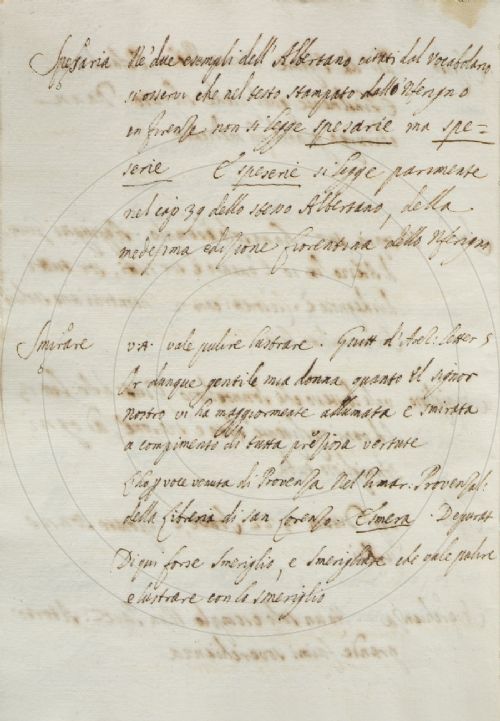 Spesaria Ne' due esempli dell'Albertano citati dal Vocabolario
si osservi che nel testo stampato dall'Inferigno
in firenze non si legge spesarie ma spe=
serie E speserie si legge parimente
nel cap 39 dello stesso Albertano, della
medesima edizione fiorentina dello Inferigno
Smirare V.A. vale pulire lustrare. Guitt d'Arez: letter 5
Or dunque gentile mia donna quanto il signor
nostro vi ha maggiormente allumata e smirata
a compimento di tutta preziosa vertute
voce venuta di Provenza Nel Rimar: Provenzal:
della Libreria di san Lorenzo. Esmera. Depurat
Di qui forse smeriglio, e smerigliare che vale pulire
e lustrare con lo smeriglio